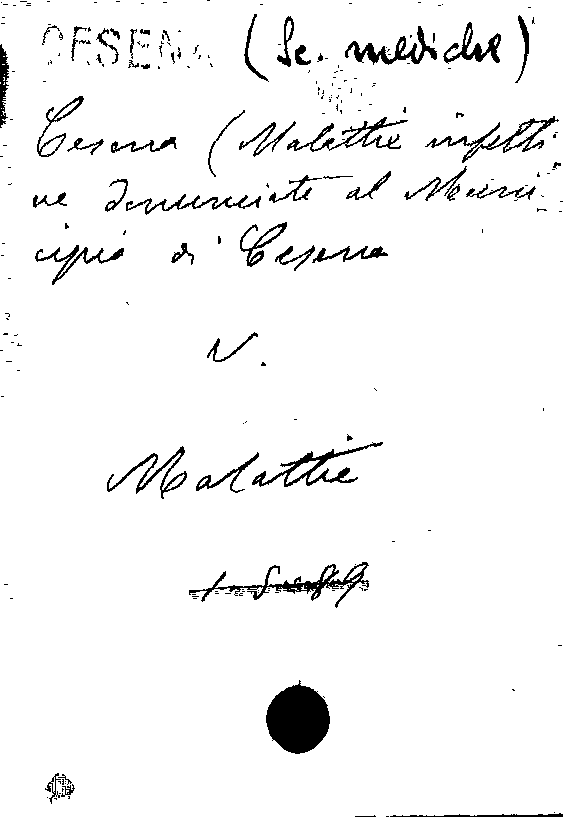 CESENA (Sc. mediche)
Cesena (Malattie infetti
ve denunciate al Muni
cipio di Cesena
V.
Malattie